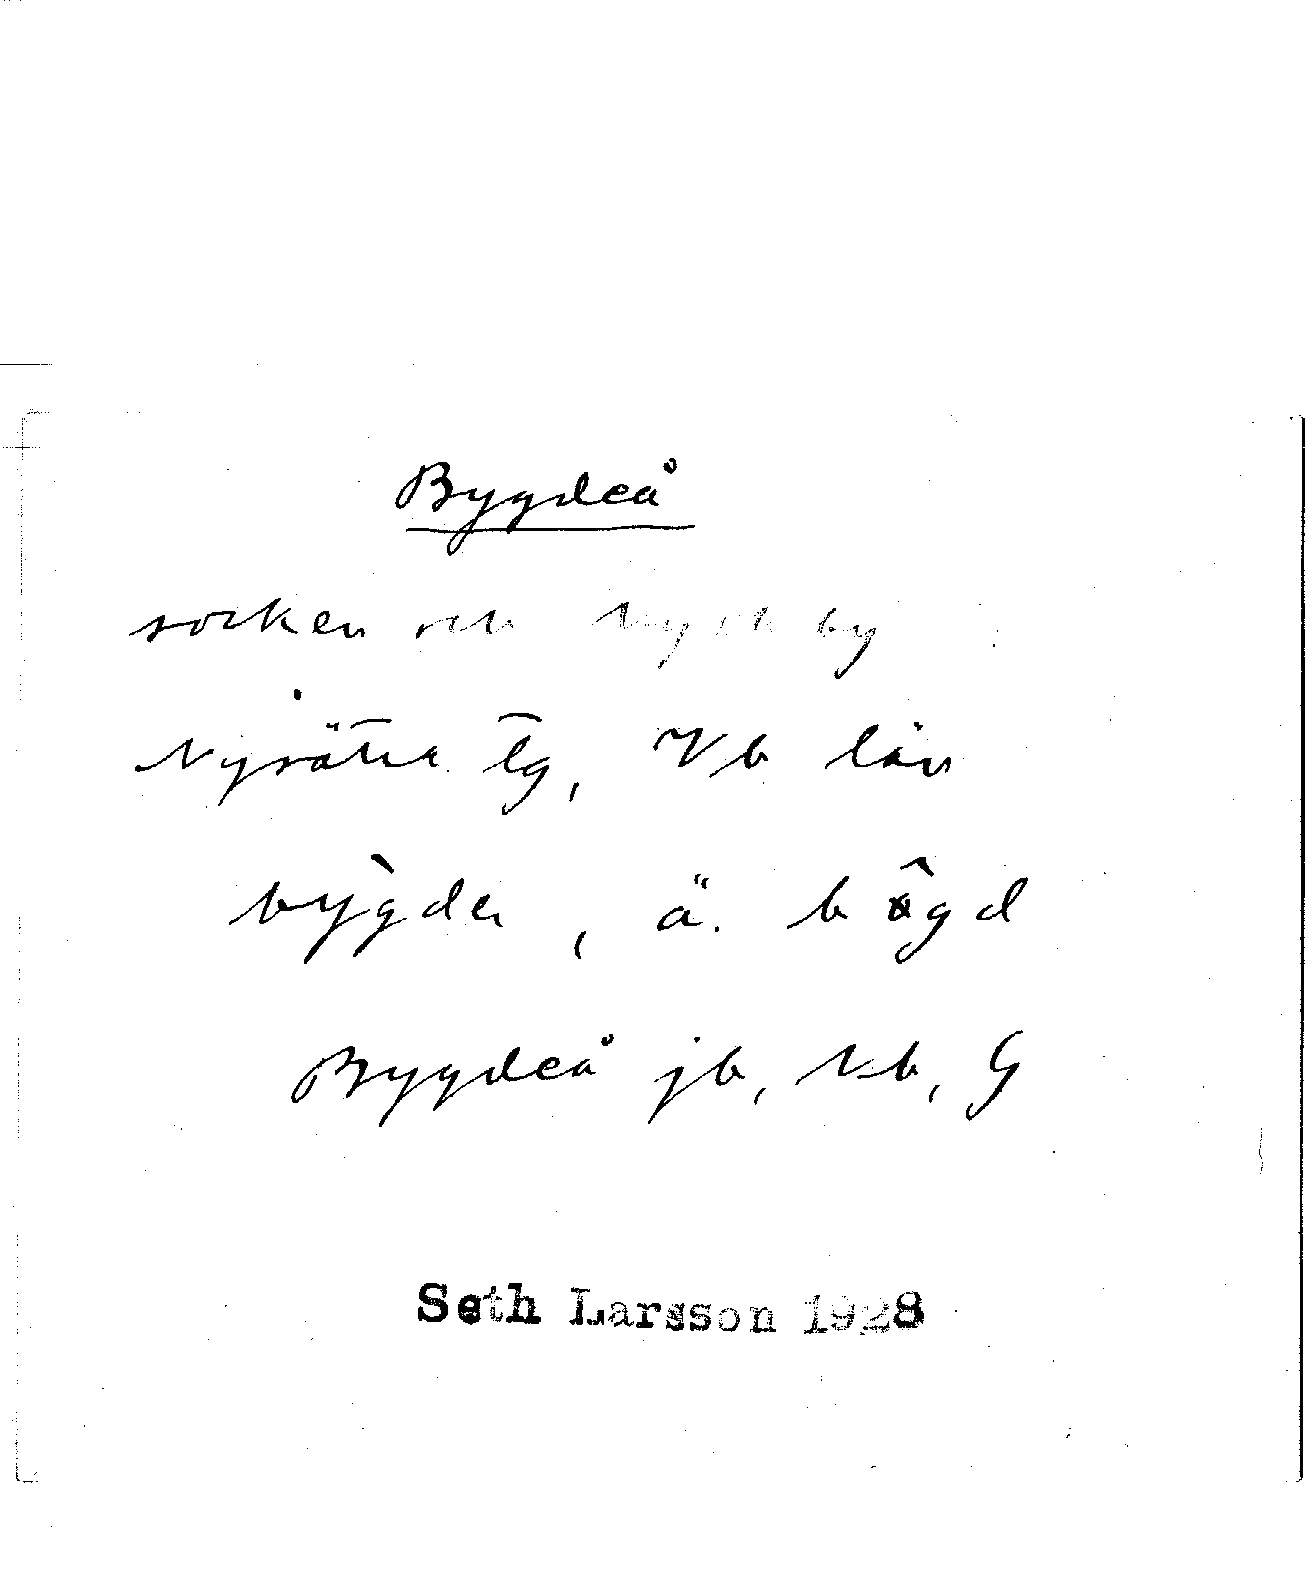 Bygdeå
socken och kyrkby
Nysätra tg, Vb län
bỳgder, ä. b gd
Bygdeå jb, Vb, G
Seth Larsson 1928